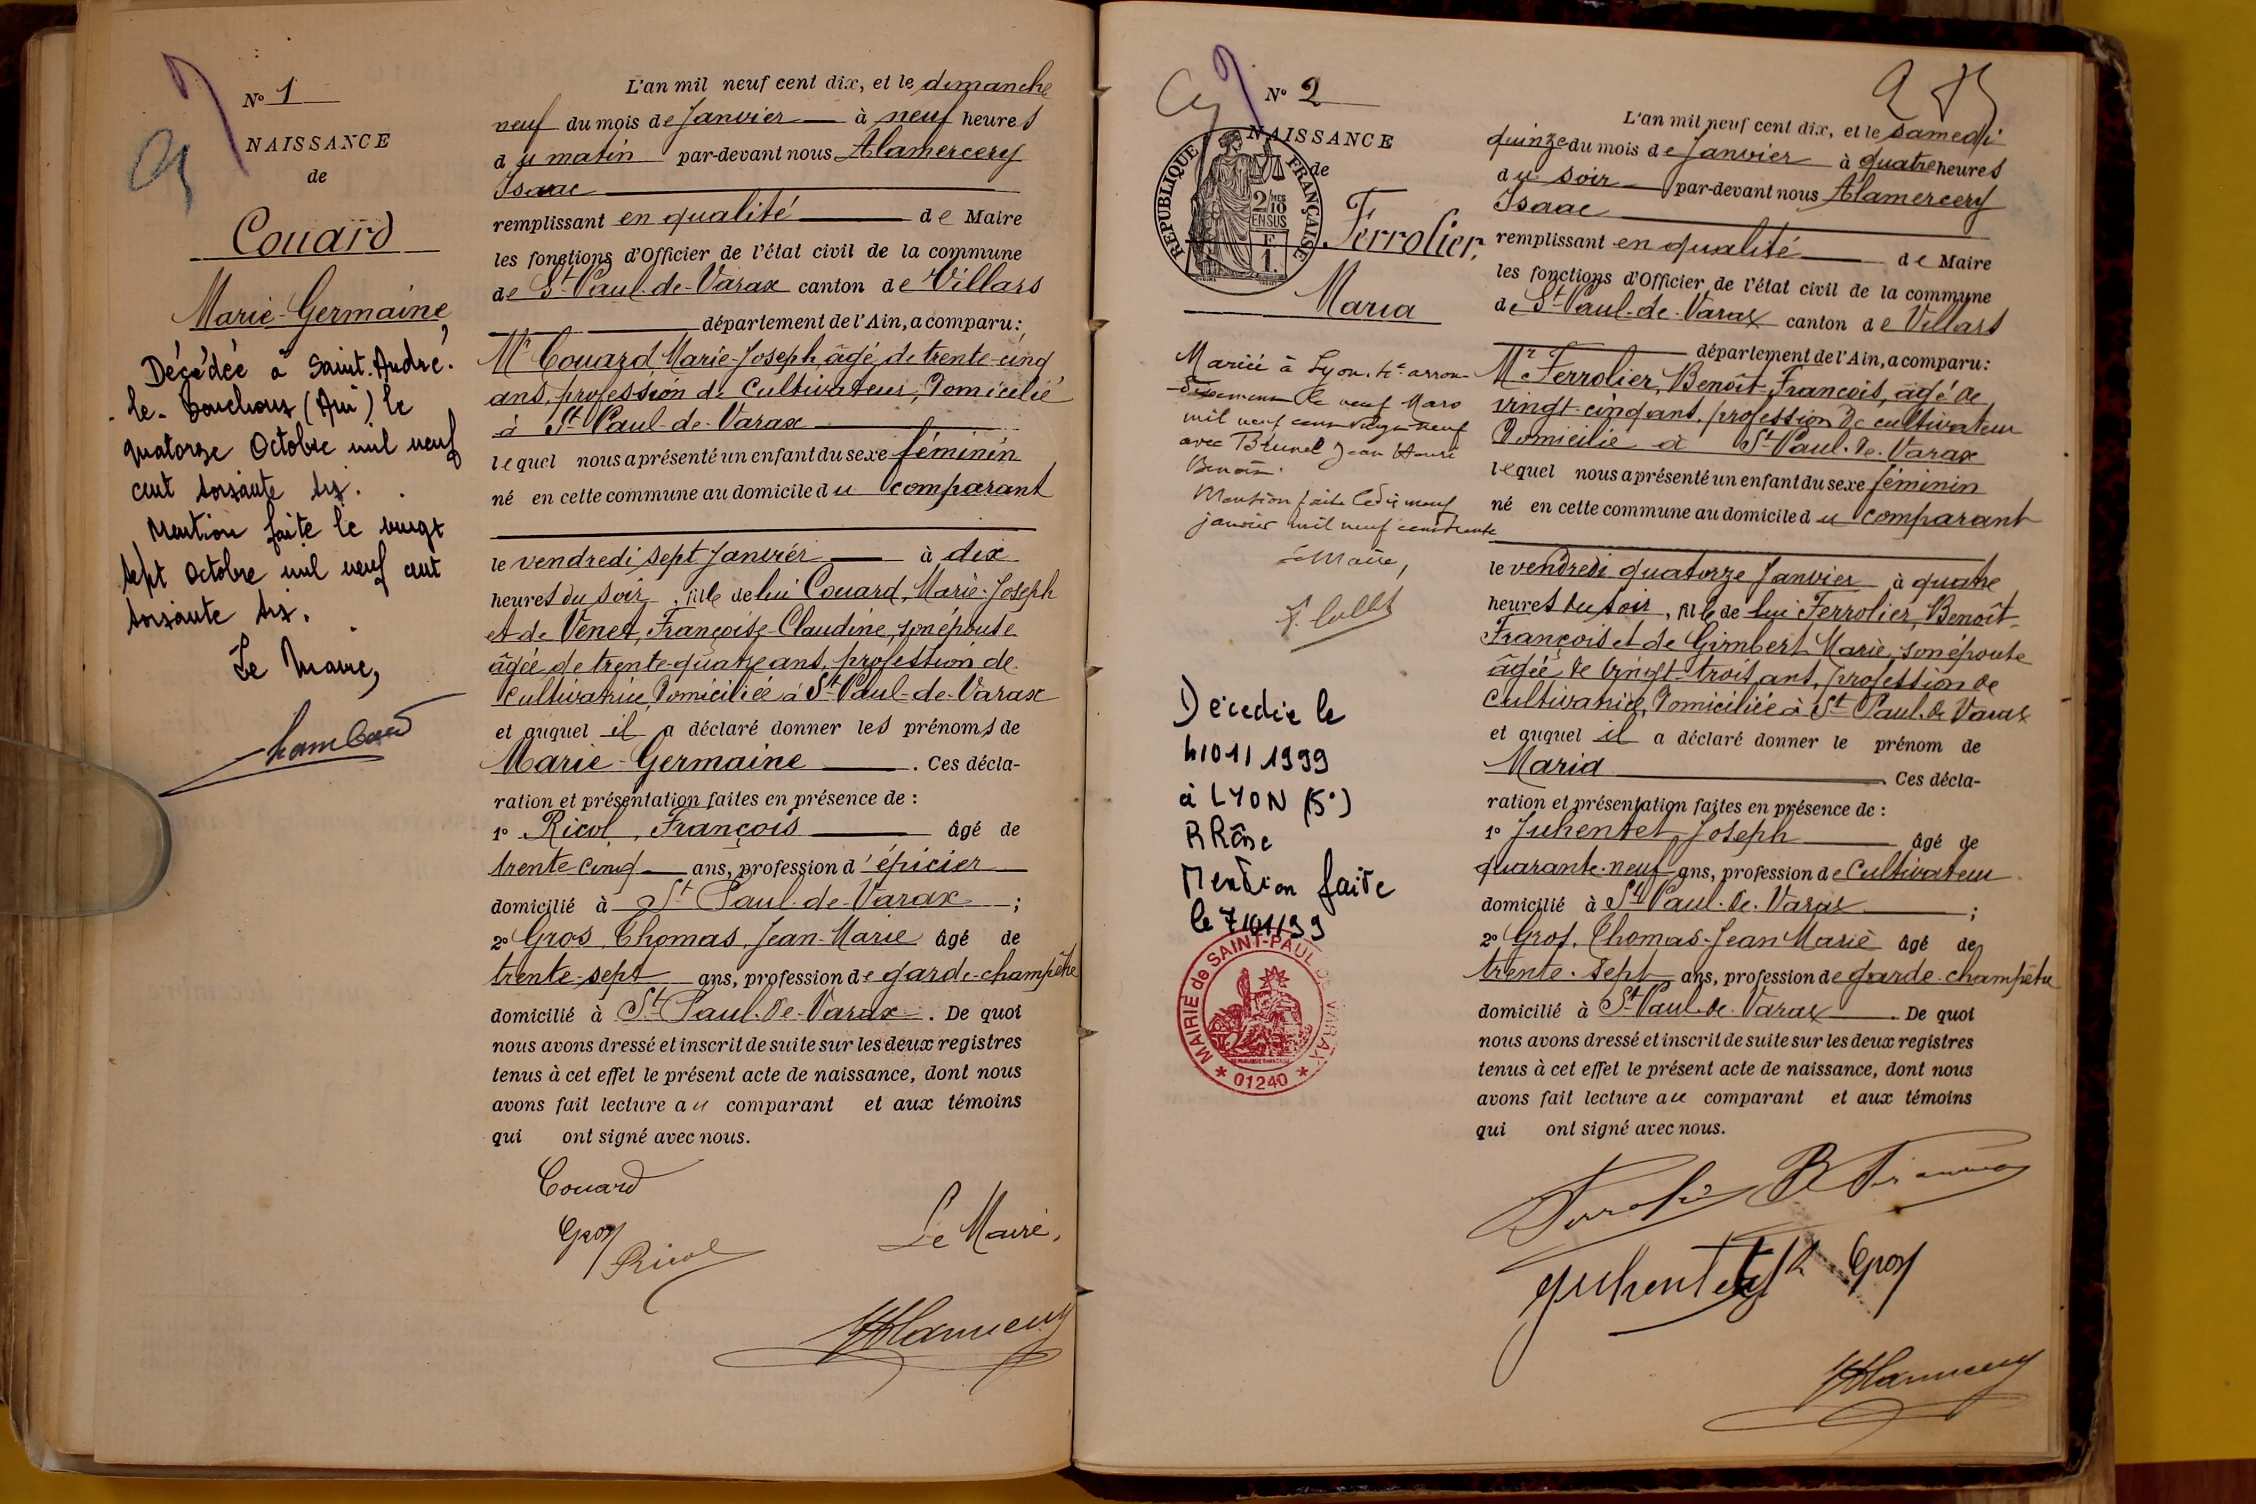 N° 1
NAISSANCE
de
Couard
Marie-Germaine
Décédée à Saint-André-
le-Bouchoux (Ain) le
quatorze Octobre mil neuf
cent soixante six.
Mention faite le vingt
sept octobre mil neuf cent
soixante six.
Le Maire,
L'an mil neuf cent dix, et le dimanche
neuf du mois de Janvier à neuf heures
du matin par-devant nous Alamercery
Isaac
remplissant en qualité de Maire
les fonctions d'Officier de l'état civil de la commune
de St Paul-de-Varax canton de Villars
département de l'Ain, a comparu:
Mr Couard, Marie-Joseph âgé de trente-cinq
ans, profession de cultivateur, domicilié
à St Paul-de-Varax
lequel nous a présenté un enfant du sexe féminin
né en cette commune au domicile du comparant
le vendredi sept Janvier à dix
heures du soir, fille de lui Couard, Marie-Joseph
et de Venet, Françoise-Claudine, son épouse
âgée de trente-quatre ans, profession de
cultivatrice, domiciliée à St Paul-de-Varax
et auquel il a déclaré donner les prénoms de
Marie-Germaine. Ces décla-
ration et présentation faites en présence de :
1° Ricol, François âgé de
trente cinq ans, profession d'épicier
domicilié à St Paul-de-Varax ;
2° Gros, Thomas, Jean-Marie âgé de
trente-sept ans, profession de garde-champêtre
domicilié à St Paul-de-Varax. De quoi
nous avons dressé et inscrit de suite sur les deux registres
tenus à cet effet le présent acte de naissance, dont nous
avons fait lecture au comparant et aux témoins
qui ont signé avec nous.
Couard
Gros
Ricol
Le Maire,
N° 2
NAISSANCE
de
REPUBLIQUE FRANÇAISE
2/10 EN SUS
F
1.
Ferrolier,
Maria
Mariée à Lyon, 4e arron-
dissement le neuf Mars
mil neuf cent vingt neuf
avec Brunel Jean Henri
Benoît.
Mention faite le dix neuf
janvier mil neuf cent trente
Le Maire,
Décédée le
4/01/1999
à LYON (5°)
Rhône
Mention faite
le 7/01/99
MAIRIE de SAINT-PAUL DE VARAX
* 01240 *
L'an mil neuf cent dix, et le samedi
quinze du mois de Janvier à quatre heures
du soir par-devant nous Alamercery
Isaac
remplissant en qualité de Maire
les fonctions d'Officier de l'état civil de la commune
de St Paul-de-Varax canton de Villars
département de l'Ain, a comparu:
Mr Ferrolier, Benoît-François, âgé de
vingt-cinq ans, profession de cultivateur
domicilié à St Paul-de-Varax
lequel nous a présenté un enfant du sexe féminin
né en cette commune au domicile du comparant
le vendredi quatorze Janvier à quatre
heures du soir, fille de lui Ferrolier, Benoît-
François et de Gimbert Marie, son épouse
âgée de vingt-trois ans, profession de
cultivatrice, domiciliée à St Paul-de-Varax
et auquel il a déclaré donner le prénom de
Maria. Ces décla-
ration et présentation faites en présence de :
1° Juhentet, Joseph âgé de
quarante-neuf ans, profession de cultivateur
domicilié à St Paul-de-Varax ;
2° Gros, Thomas-Jean Marie âgé de
trente-sept ans, profession de garde-champêtre
domicilié à St Paul-de-Varax. De quoi
nous avons dressé et inscrit de suite sur les deux registres
tenus à cet effet le présent acte de naissance, dont nous
avons fait lecture au comparant et aux témoins
qui ont signé avec nous.
Juhentet
Gros